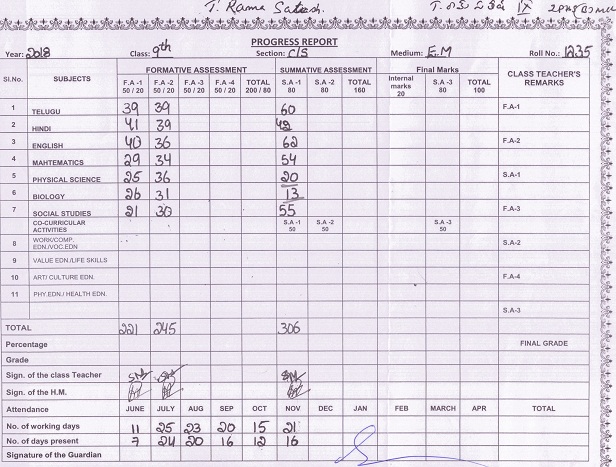 T. Rama Satish. T. IX
PROGRESS REPORT
Year: 2018 Class: 9th Section: C/S Medium: E.M Roll No.: 1235
Sl.No. SUBJECTS FORMATIVE ASSESSMENT SUMMATIVE ASSESSMENT Final Marks CLASS TEACHER'S REMARKS
F.A -1 50 / 20 F.A -2 50 / 20 F.A -3 50 / 20 F.A -4 50 / 20 TOTAL 200 / 80 S.A -1 80 S.A -2 80 TOTAL 160 Internal marks 20 S.A -3 80 TOTAL 100
1 TELUGU 39 39 60 F.A-1
2 HINDI 41 39 42
3 ENGLISH 40 36 62 F.A-2
4 MAHTEMATICS 29 34 54
5 PHYSICAL SCIENCE 25 36 20 S.A-1
6 BIOLOGY 26 31 13
7 SOCIAL STUDIES 21 30 55 F.A-3
CO-CURRICULAR ACTIVITIES S.A -1 50 S.A -2 50 S.A -3 50
8 WORK/COMP. EDN./VOC.EDN S.A-2
9 VALUE EDN./LIFE SKILLS
10 ART/ CULTURE EDN. F.A-4
11 PHY.EDN./ HEALTH EDN.
S.A-3
TOTAL 221 245 306
Percentage FINAL GRADE
Grade
Sign. of the class Teacher
Sign. of the H.M.
Attendance JUNE JULY AUG SEP OCT NOV DEC JAN FEB MARCH APR TOTAL
No. of working days 11 25 23 20 15 21
No. of days present 7 24 20 16 12 16
Signature of the Guardian